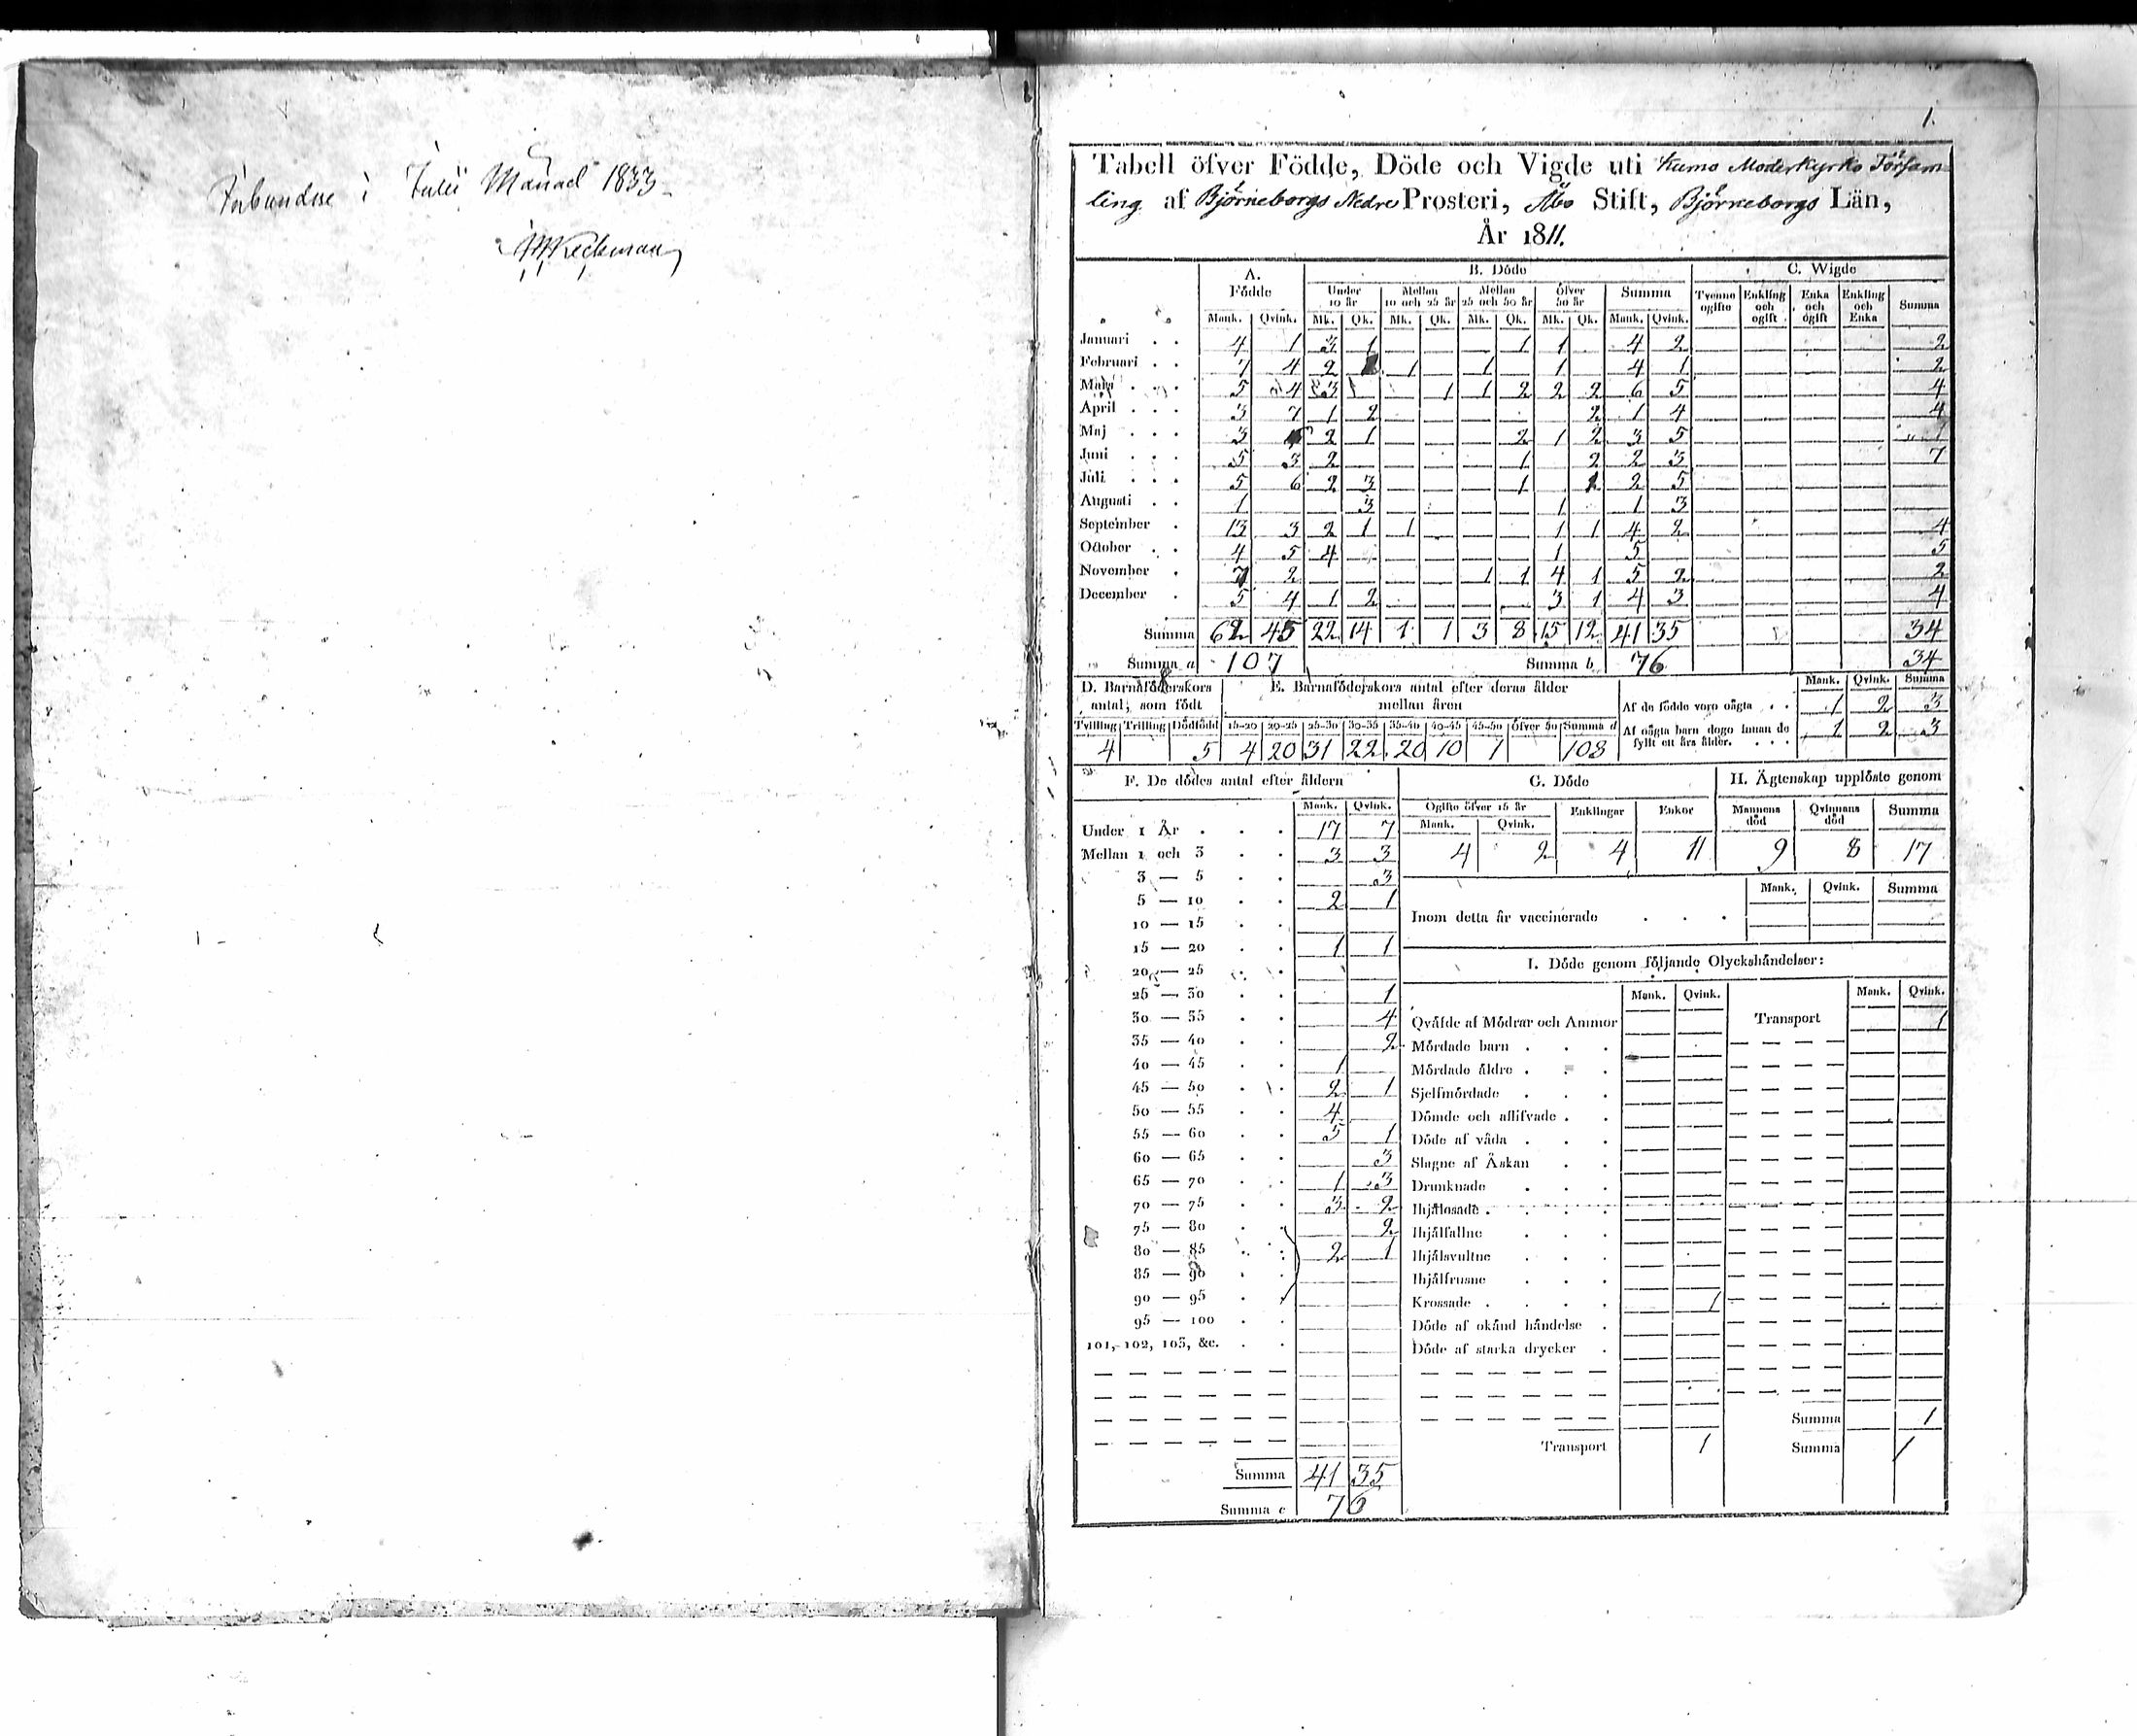 Inbundne i Julii Månad 1833
1.
Tabell öfver Födde, Döde och Vigde uti Kumo Moderkyrko Församling
ling af Björneborgs Nedre Prosteri, Åbo Stift, Björneborgs Län,
År 1811.
A. Födde B. Döde C. Wigde
Under 10 år Mellan 10 och 25 år Mellan 25 och 50 år Öfver 50 år Summa Tvenne ogifte Enkling och ogift Enka och ogift Enkling och Enka Summa
Mank. Qvink. Mk. Qk. Mk. Qk. Mk. Qk. Mk. Qk. Mank. Qvink.
Januari . . 4 1 3 1 1 1 4 2 2
Februari . . 7 4 2 1 1 1 4 1 2
Mars . . . 5 4 3 1 1 2 2 2 6 5 4
April . . . 3 7 1 2 2 1 4 4
Maj . . . 3 2 1 2 1 2 3 5 1
Juni . . . 5 3 2 1 2 2 3 7
Juli . . . 5 6 2 3 1 1 2 5
Augusti . . 1 3 1 1 3
September . 13 3 2 1 1 1 1 4 2 4
October . . 4 5 4 1 5 5
November . 7 2 1 1 4 1 5 2 2
December . 5 4 1 2 3 1 4 3 4
Summa 62 45 22 14 1 1 3 8 15 12 41 35 34
Summa a 107 Summa b 76 34
D. Barnaföderskors antal, som födt E. Barnaföderskors antal efter deras ålder mellan åren Mank. Qvink. Summa
Af de födde voro oägta . . 1 2 3
Tvilling Trilling Dödfödd 15-20 20-25 25-30 30-35 35-40 40-45 45-50 Öfver 50 Summa d
Af oägta barn dogo innan de fyllt ett års ålder. . . . 1 2 3
4 5 4 20 31 22 20 10 1 108
F. De dödes antal efter åldern
Mank. Qvink.
Under 1 År . . . 17 7
Mellan 1 och 3 . . 3 3
3 — 5 . . 3
5 — 10 . . 2 1
10 — 15 . .
15 — 20 . . 1 1
20 — 25 . .
25 — 30 . . 1
30 — 35 . . 4
35 — 40 . . 2
40 — 45 . . 1
45 — 50 . . 2 1
50 — 55 . . 4
55 — 60 . . 5 1
60 — 65 . . 3
65 — 70 . . 1 3
70 — 75 . . 3 2
75 — 80 . . 2
80 — 85 . . 2 1
85 — 90 . .
90 — 95 . .
95 — 100 . .
101, 102, 103, &c. . .
Summa 41 35
Summa c 76
G. Döde
Ogifte öfver 15 år Enklingar Enkor
Mank. Qvink.
4 2 4 11
H. Ägtenskap upplöste genom
Mannens död Qvinnans död Summa
9 8 17
Mank. Qvink. Summa
Inom detta år vaccinerade . . .
I. Döde genom följande Olyckshändelser:
Mank. Qvink. Mank. Qvink.
Qväfde af Mödrar och Ammor Transport 1
Mördade barn . . .
Mördade äldre . . .
Sjelfmördade . . .
Dömde och aflifvade . .
Döde af våda . . .
Slagne af Åskan . .
Drunknade . . .
Ihjälosade . . . .
Ihjälfallne . . .
Ihjälsvultne . . .
Ihjälfrusne . . .
Krossade . . . . 1
Döde af okänd händelse .
Döde af starka drycker .
Summa 1
Transport 1 Summa 1